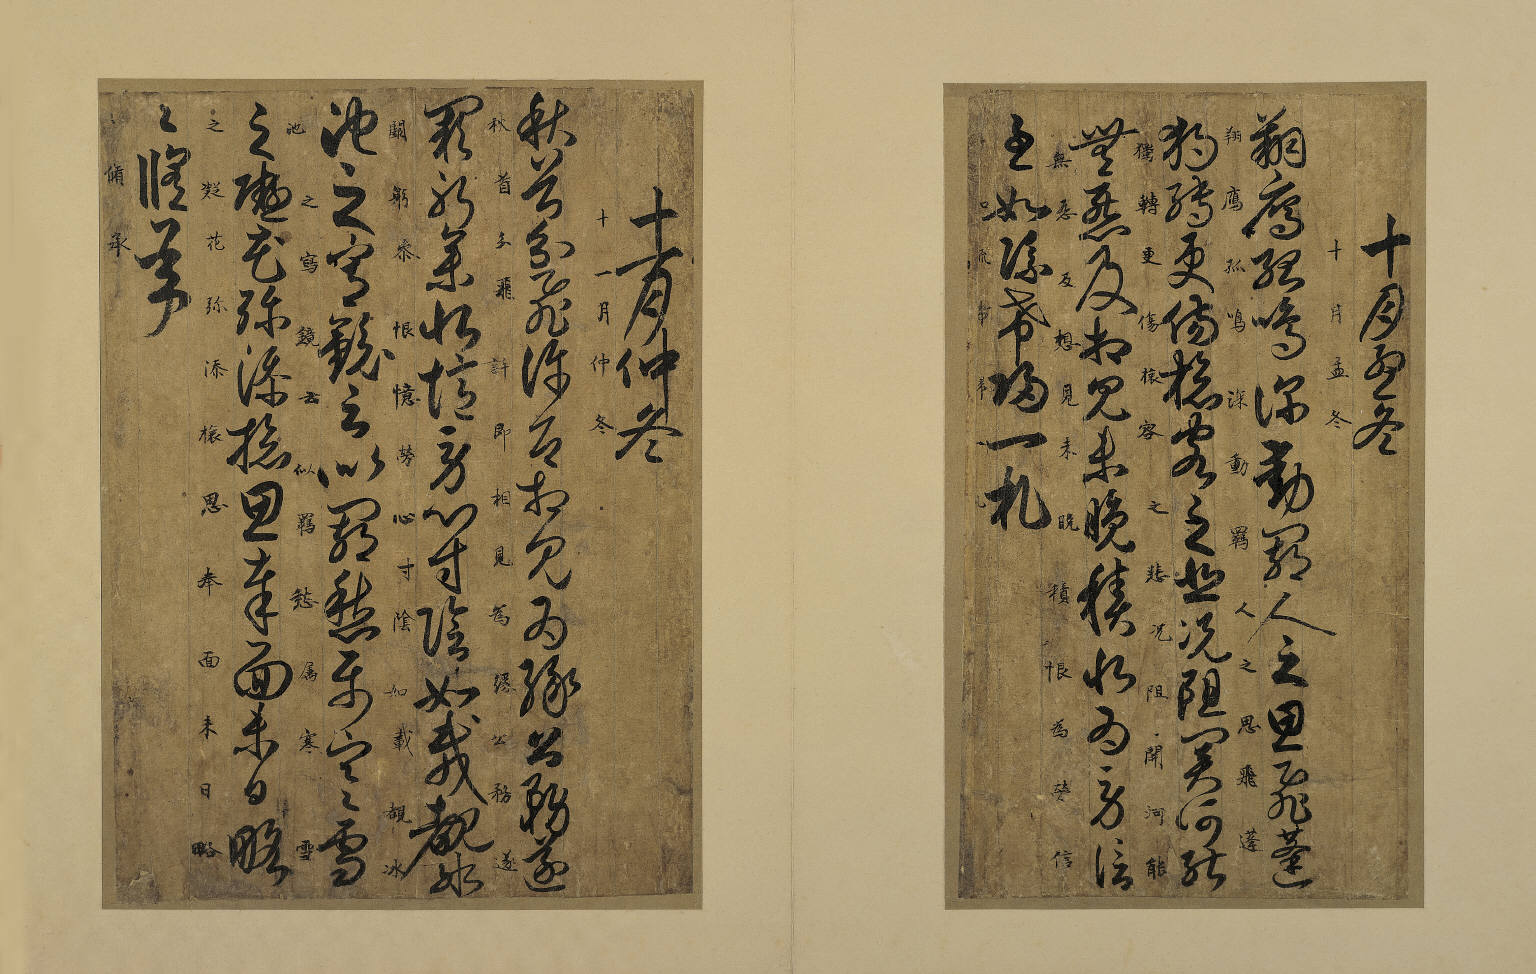 十月孟冬
十月孟冬
翔鷹孤鳴深動羇人之思飛蓬
翔鷹孤鳴深動羇人之思飛蓬
獨轉更傷旅客之悲況阻關河能
獨轉更傷旅客之悲況阻開河能
無思及相見未晚積恨為勞信
無思及想見未晚積恨為勞信
至如流希一札
十一月仲冬
十一月仲冬
秋首分飛許即相見為緣公務遂
秋首分飛許即相見為緣公務遂
闕躬叅恨憶勞心寸陰如載覩冰
關躬叅恨憶勞心寸陰如載覩冰
池之寫鏡云以羇愁屬寒雪
池之寫鏡云似羇愁属寒雪
之凝花弥添旅思奉面未日略
之凝花弥添旅思奉面未日略
々脩承
々脩承